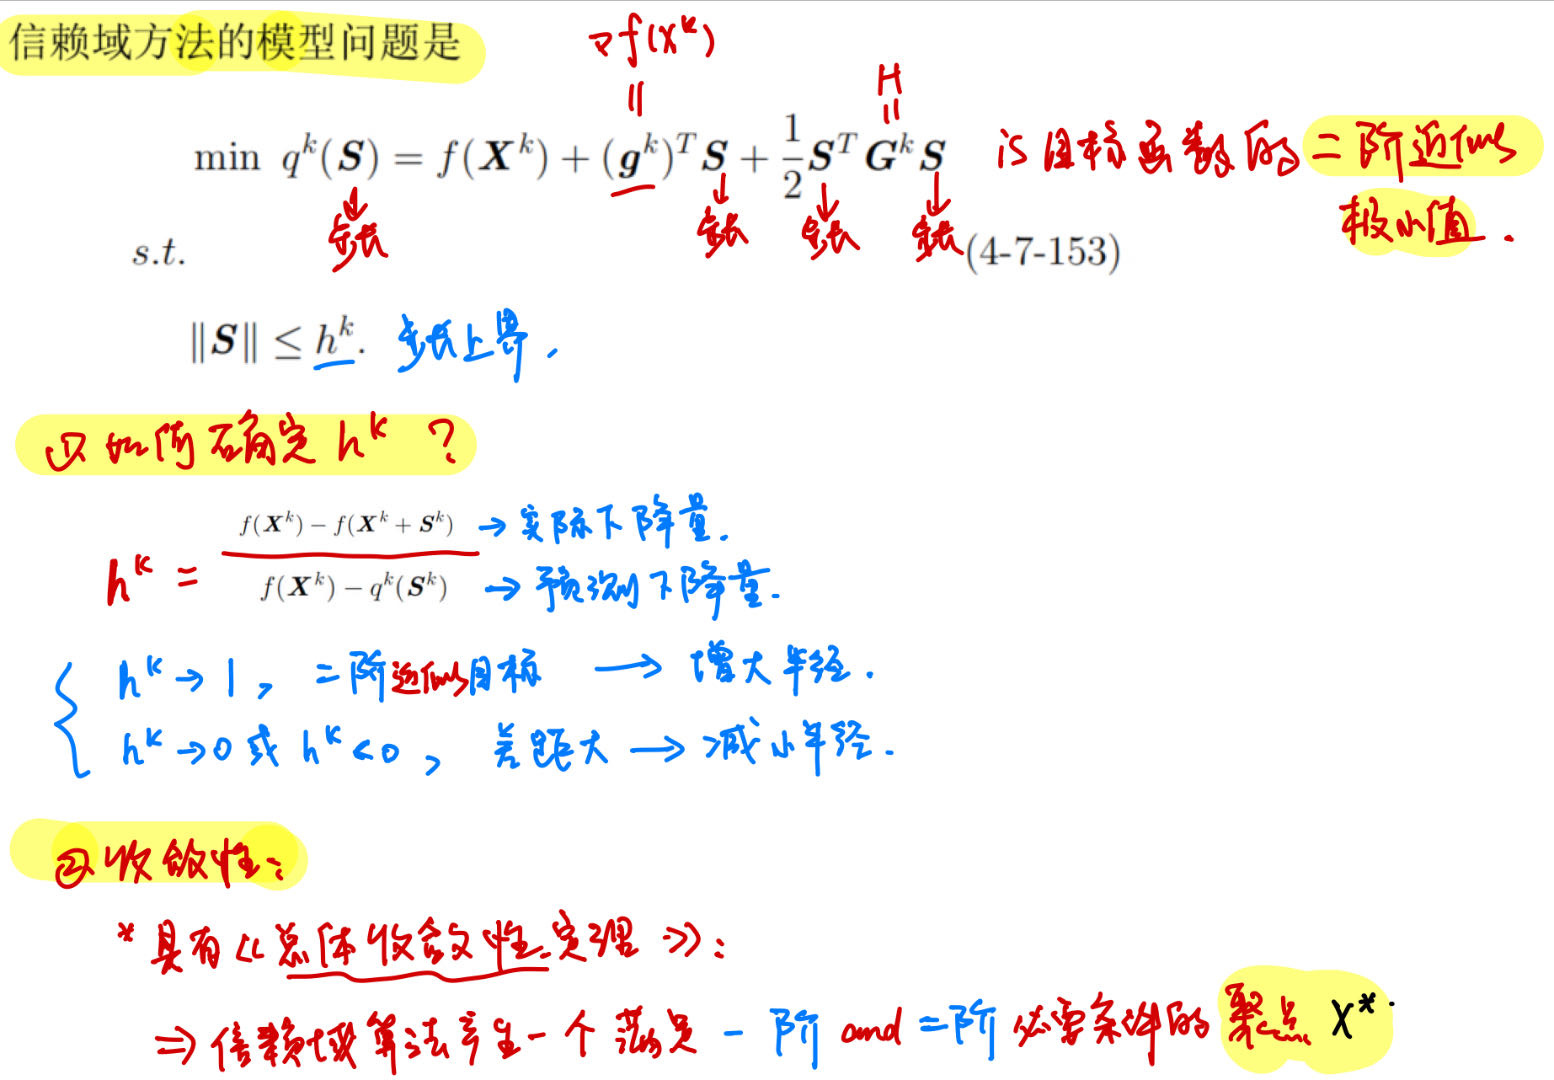 信赖域方法的模型问题是
∇f(X^k)
||
H
||
min q^k(S) = f(X^k) + (g^k)^T S + 1/2 S^T G^k S is 目标函数的二阶近似
极小值.
↓ ↓ ↓ ↓
步长 步长 步长 步长
s.t. (4-7-153)
‖S‖ ≤ h^k. 步长上界,
① 如何确定 h^k ?
f(X^k) − f(X^k + S^k) → 实际下降量.
h^k =
f(X^k) − q^k(S^k) → 预测下降量.
{ h^k → 1, 二阶近似目标 → 增大半径.
h^k → 0 或 h^k < 0, 差距大 → 减小半径.
② 收敛性:
* 具有《总体收敛性定理》:
⇒ 信赖域算法产生一个满足一阶 and 二阶必要条件的聚点 X*.